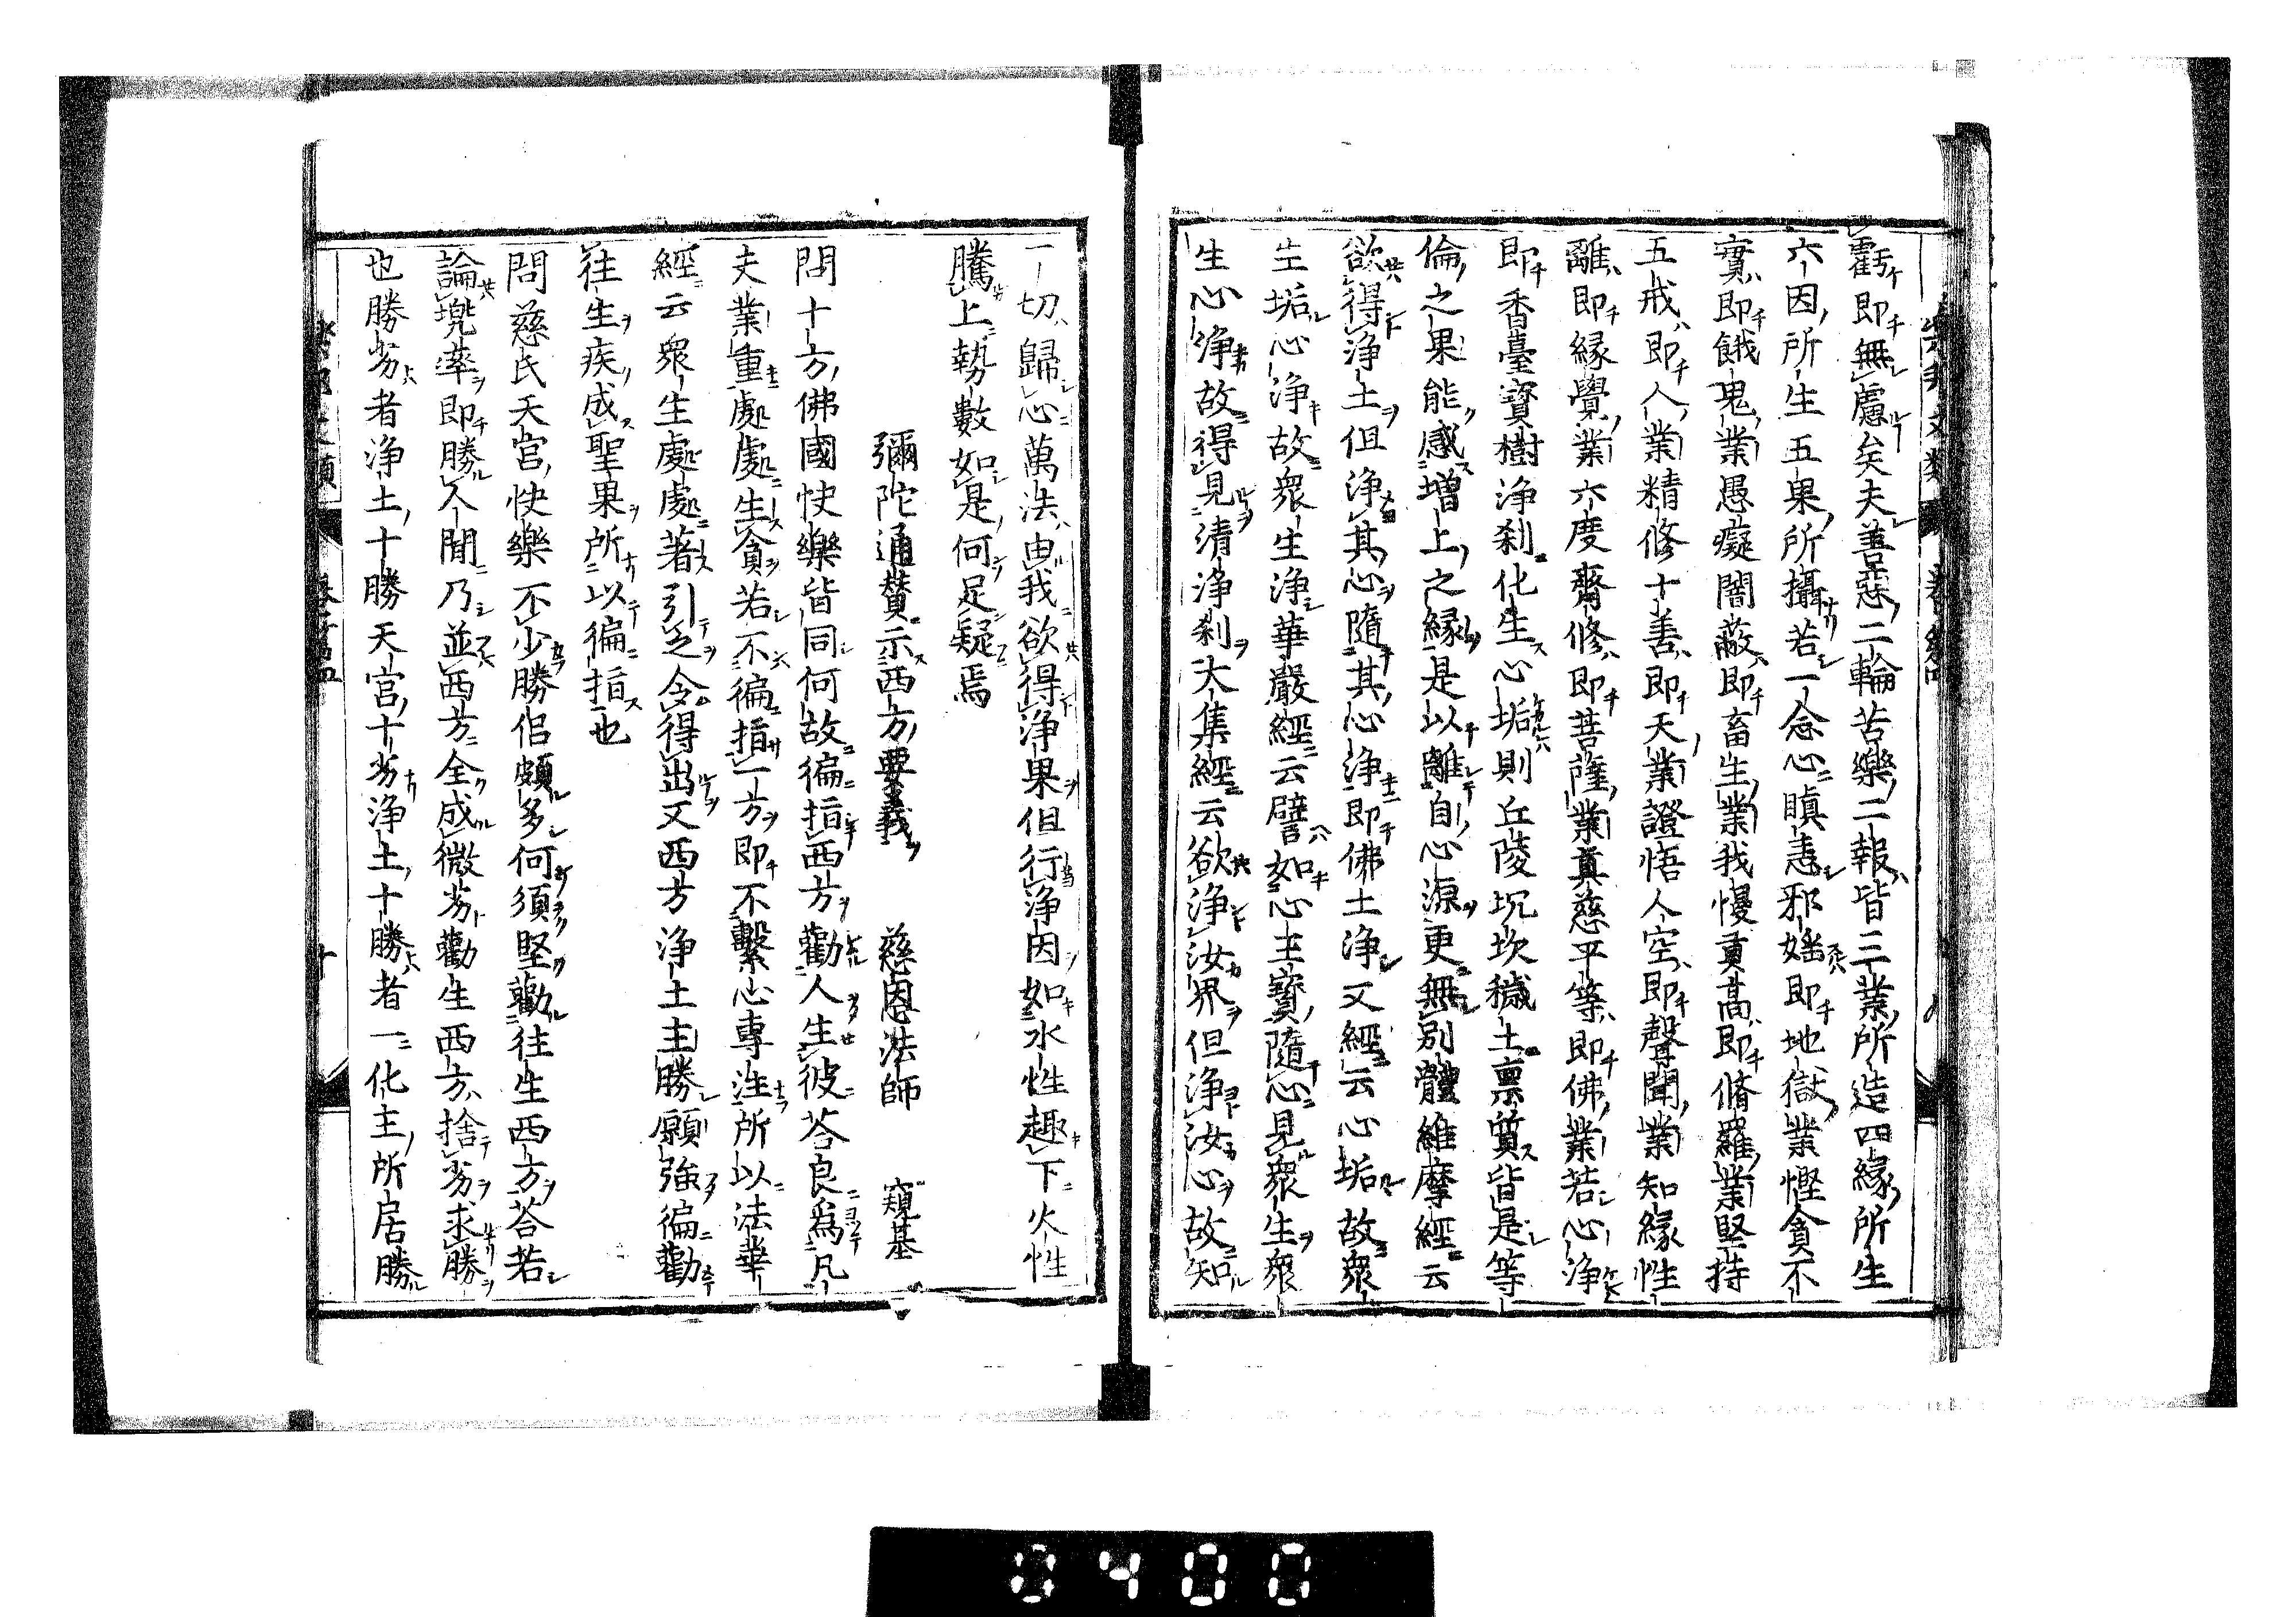 虧即無慮矣夫善惡二輪苦樂二報皆三業所造四緣所生
六因所生五果所攝若一念心瞋恚邪婬即地獄業慳貪不
實即餓鬼業愚癡闇蔽即畜生業我慢貢高即脩羅業堅持
五戒即人業精修十善即天業證悟人空即聲聞業知緣性
離即緣覺業六度齊修即菩薩業真慈平等即佛業若心淨
即香臺寶樹淨刹化生心垢則丘陵坑坎穢土禀質皆是等
倫之果能感增上之緣是以離自心源更無別體維摩經云
欲得淨土但淨其心隨其心淨即佛土淨又經云心垢故眾
生垢心淨故眾生淨華嚴經云譬如心王寶隨心見眾生眾
生心淨故得見清淨刹大集經云欲淨汝界但淨汝心故知
一切歸心萬法由我欲得淨果但行淨因如水性趣下火性
騰上勢數如是何足疑焉
彌陀通贊示西方要義 慈恩法師 窺基
問十方佛國快樂皆同何故徧指西方勸人生彼荅良爲凡
夫業重處處生貪若不徧指一方即不繫心專注所以法華
經云眾生處處著引之令得出又西方淨土主勝願強徧勸
往生疾成聖果所以徧指也
問慈氏天宮快樂不少勝侶頗多何須堅勸往生西方荅若
論兜率即勝人間乃並西方全成微劣勸生西方捨劣求勝
也勝劣者淨土十勝天宮十劣淨土十勝者一化主所居勝